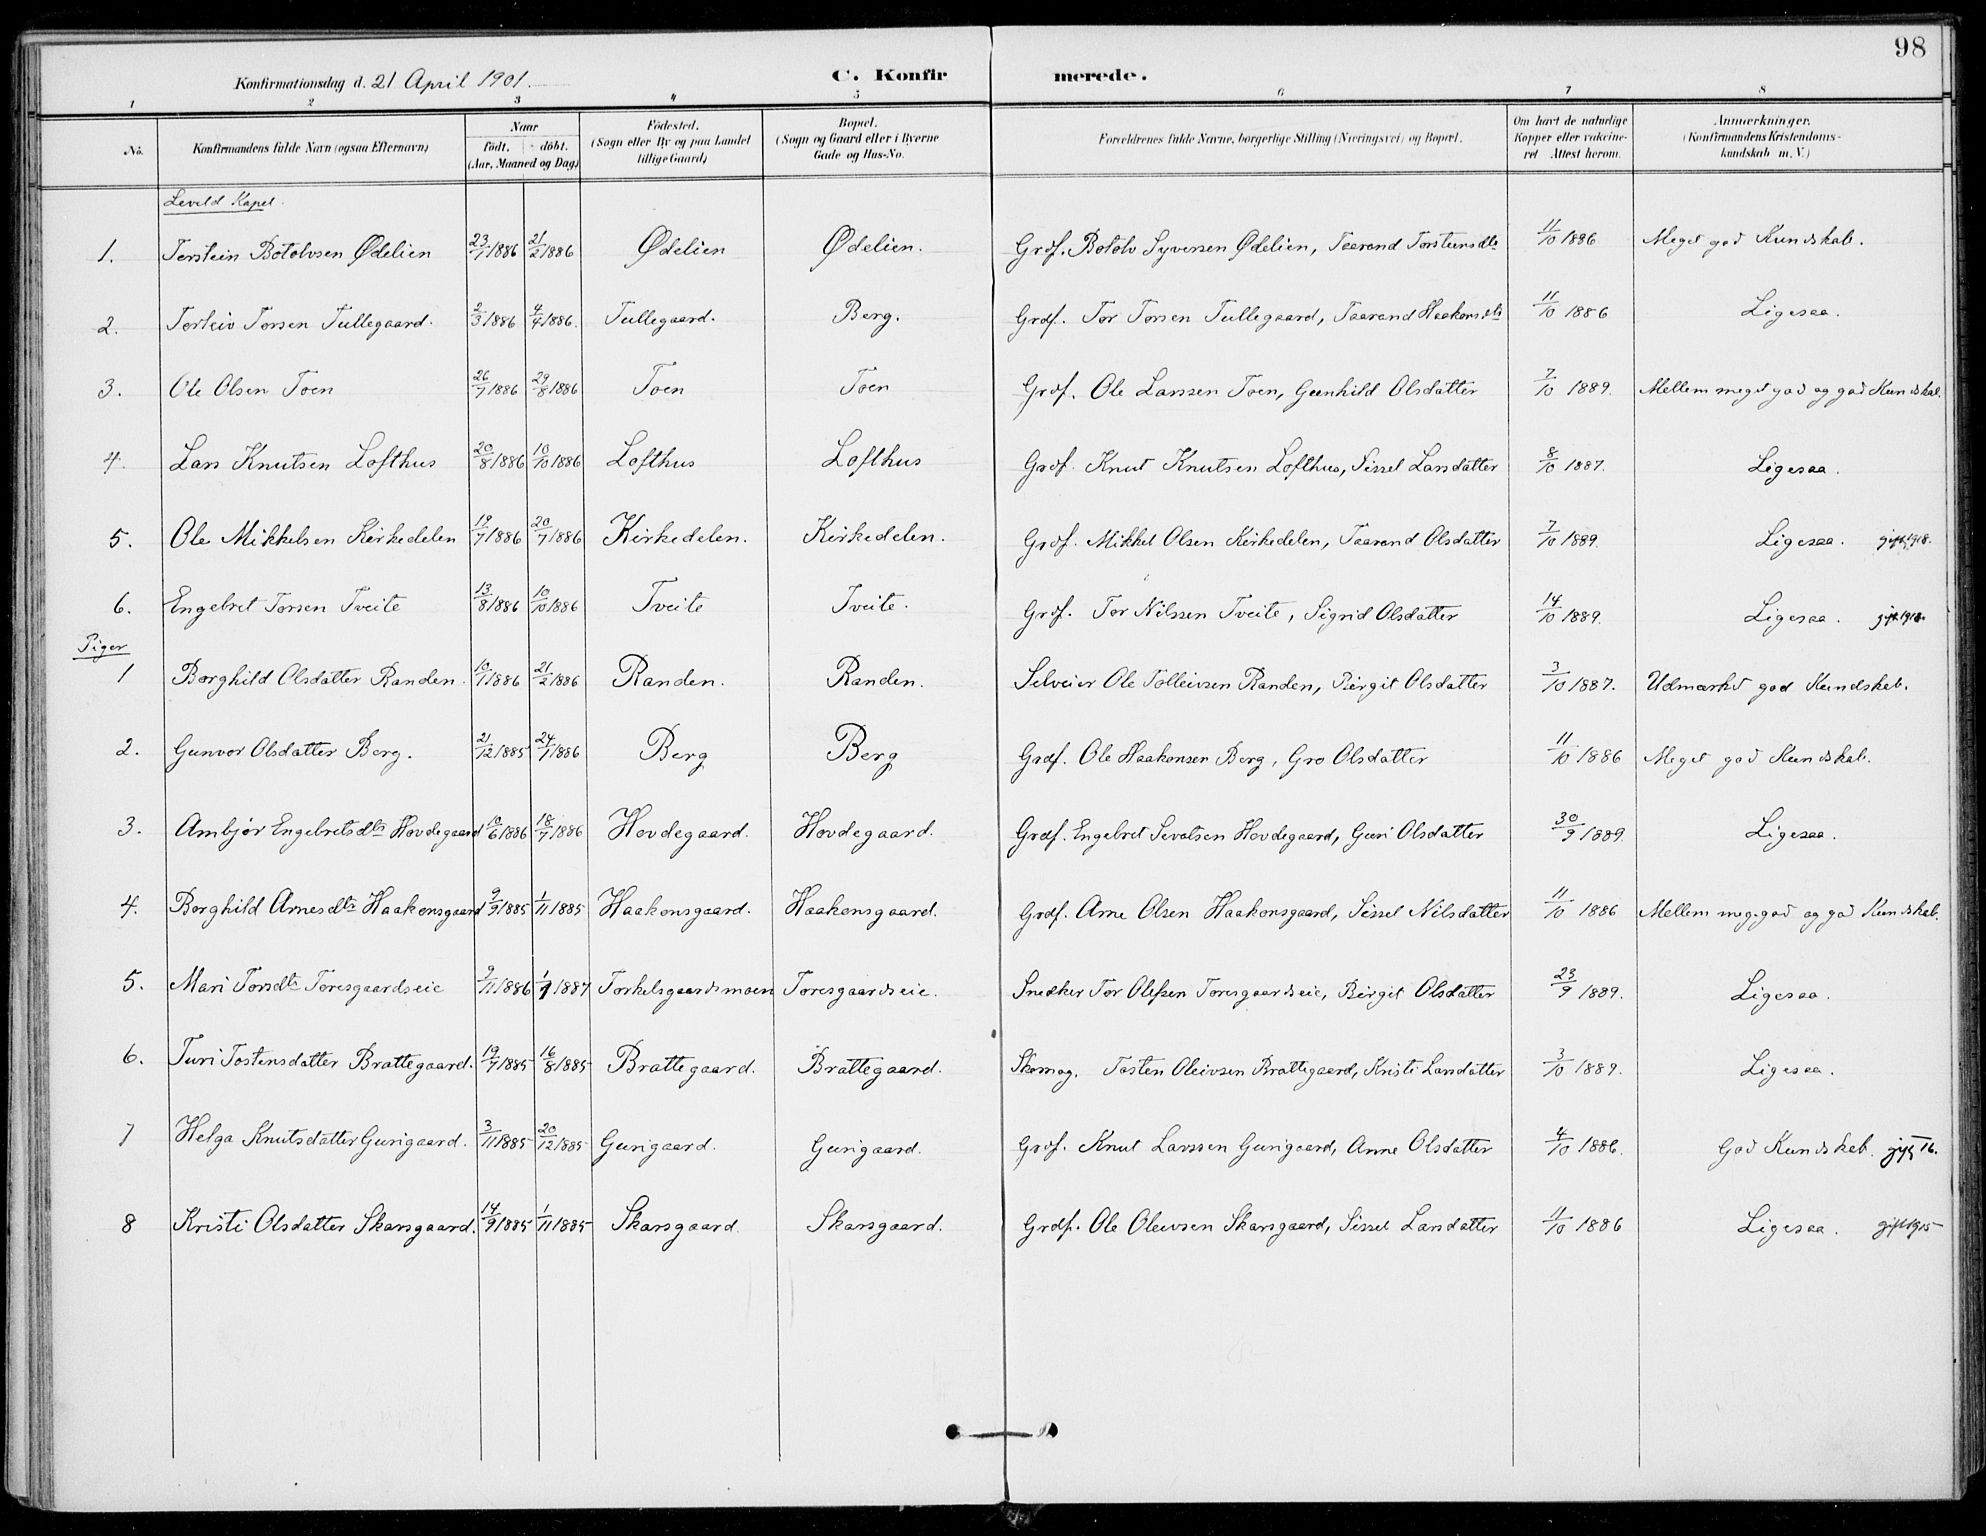 98
Konfirmationsdag d. 21 April 1901.
C. Konfirmerede.
1 2 3 4 5 6 7 8
No. | Konfirmandens fulde Navn (ogsaa Efternavn) | Naar födt. döbt. (Aar, Maaned og Dag) | Födested. (Sogn eller By og paa Landet tillige Gaard) | Bopæl. (Sogn og Gaard eller i Byerne Gade og Hus-No. | Forældrenes fulde Navne, borgerlige Stilling (Næringsvei) og Bopæl. | Om havt de naturlige Kopper eller vaksineret Attest herom. | Anmærkninger. (Konfirmandens Kristendomskundskab m. V.)
Leveld Kapel.
1. Torstein Botolvsen Ødelien | 23/1 1886 | 21/2 1886 | Ødelien | Ødelien. | Grdf. Botolv Syversen Ødelien, Taarand Torsteinsdtr | 11/10 1896 | Meget god Kundskab.
2. Torleiv Torsen Tullegaard. | 2/3 1886 | 4/4 1886. | Tullegaard. | Berg. | Grdf. Tor Torsen Tullegaard, Taarand Haakonsdtr | 11/10 1886 | Ligesaa.
3. Ole Olsen Toen | 26/7 1886 | 29/8 1886 | Toen | Toen | Grdf. Ole Larssen Toen, Gunhild Olsdatter | 7/10 1889. | Mellem meget god og god Kundskab.
4. Lars Knutsen Lofthus | 20/8 1886 | 10/10 1886 | Lofthus | Lofthus | Grdf. Knut Knutsen Lofthus, Sissel Larsdatter | 8/10 1887. | Ligesaa.
5. Ole Mikkelsen Kirkedelen | 19/7 1886 | 20/7 1886 | Kirkedelen. | Kirkedelen. | Grdf. Mikkel Olsen Kirkedelen, Taarand Olsdatter | 7/10 1889. | Ligesaa. gift 1918.
6. Engebret Torsen Tveite | 13/8 1886 | 10/10 1886 | Tveite | Tveite. | Grdf. Tor Nilssen Tveite, Sigrid Olsdatter | 14/10 1889. | Ligesaa.
Piger
1 Borghild Olsdatter Randen. | 10/1 1886 | 21/2 1886 | Randen. | Randen. | Selveier Ole Tolleivsen Randen, Birgit Olsdatter | 3/10 1887. | Udmærket god Kundskab.
2. Gunvor Olsdatter Berg. | 21/12 1885 | 24/1 1886 | Berg | Berg | Grdf. Ole Haakonsen Berg, Gro Olsdatter | 11/10 1886 | Meget god Kundskab.
3. Ambjør Engebretsdtr Hovdegaard | 10/6 1886 | 18/7 1886 | Hovdegaard. | Hovdegaard. | Grdf. Engebret Sevatsen Hovdegaard, Guri Olsdatter | 30/9 1889. | Ligesaa.
4. Borghild Arnesdtr Haakonsgaard | 9/9 1885 | 1/11 1885 | Haakonsgaard. | Haakonsgaard. | Grdf. Arne Olsen Haakonsgaard, Sissel Nilsdatter | 11/10 1886 | Mellem meg. god og god Kundskab.
5. Mari Torsdtr Toresgaardseie | 9/11 1886 | 1/1 1887 | Torkelsgaardsmoen | Toresgaardseie. | Snedker Tor Olefsen Toresgaardseie, Birgit Olsdatter | 23/9 1889. | Ligesaa.
6. Turi Tostensdatter Brattegaard. | 19/7 1885 | 16/8 1885 | Brattegaard. | Brattegaard. | Skomag. Tosten Oleivsen Brattegaard, Kristi Larsdatter | 3/10 1889. | Ligesaa.
7 Helga Knutsdatter Gurigaard. | 3/11 1885 | 20/12 1885 | Gurigaard. | Gurigaard. | Grdf. Knut Larssen Gurigaard, Anne Olsdatter | 4/10 1886. | God Kundskab.
8 Kristi Olsdatter Skarsgaard. | 14/9 1885 | 1/11 1885 | Skarsgaard. | Skarsgaard. | Grdf. Ole Oleivsen Skarsgaard, Sissel Larsdatter | 11/10 1886 | Ligesaa. gift 1915